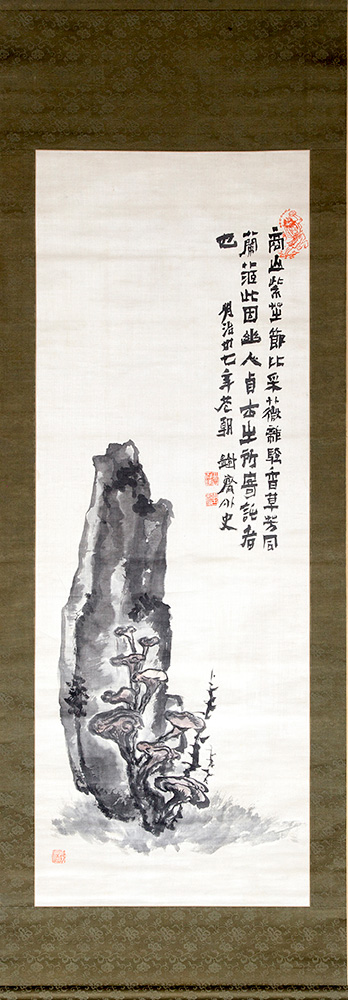 商山紫芝節比采薇離騷香草芳同
蘭茝此因幽人貞士之所寄託者
也
明治卅七年花朝 鐵齋外史